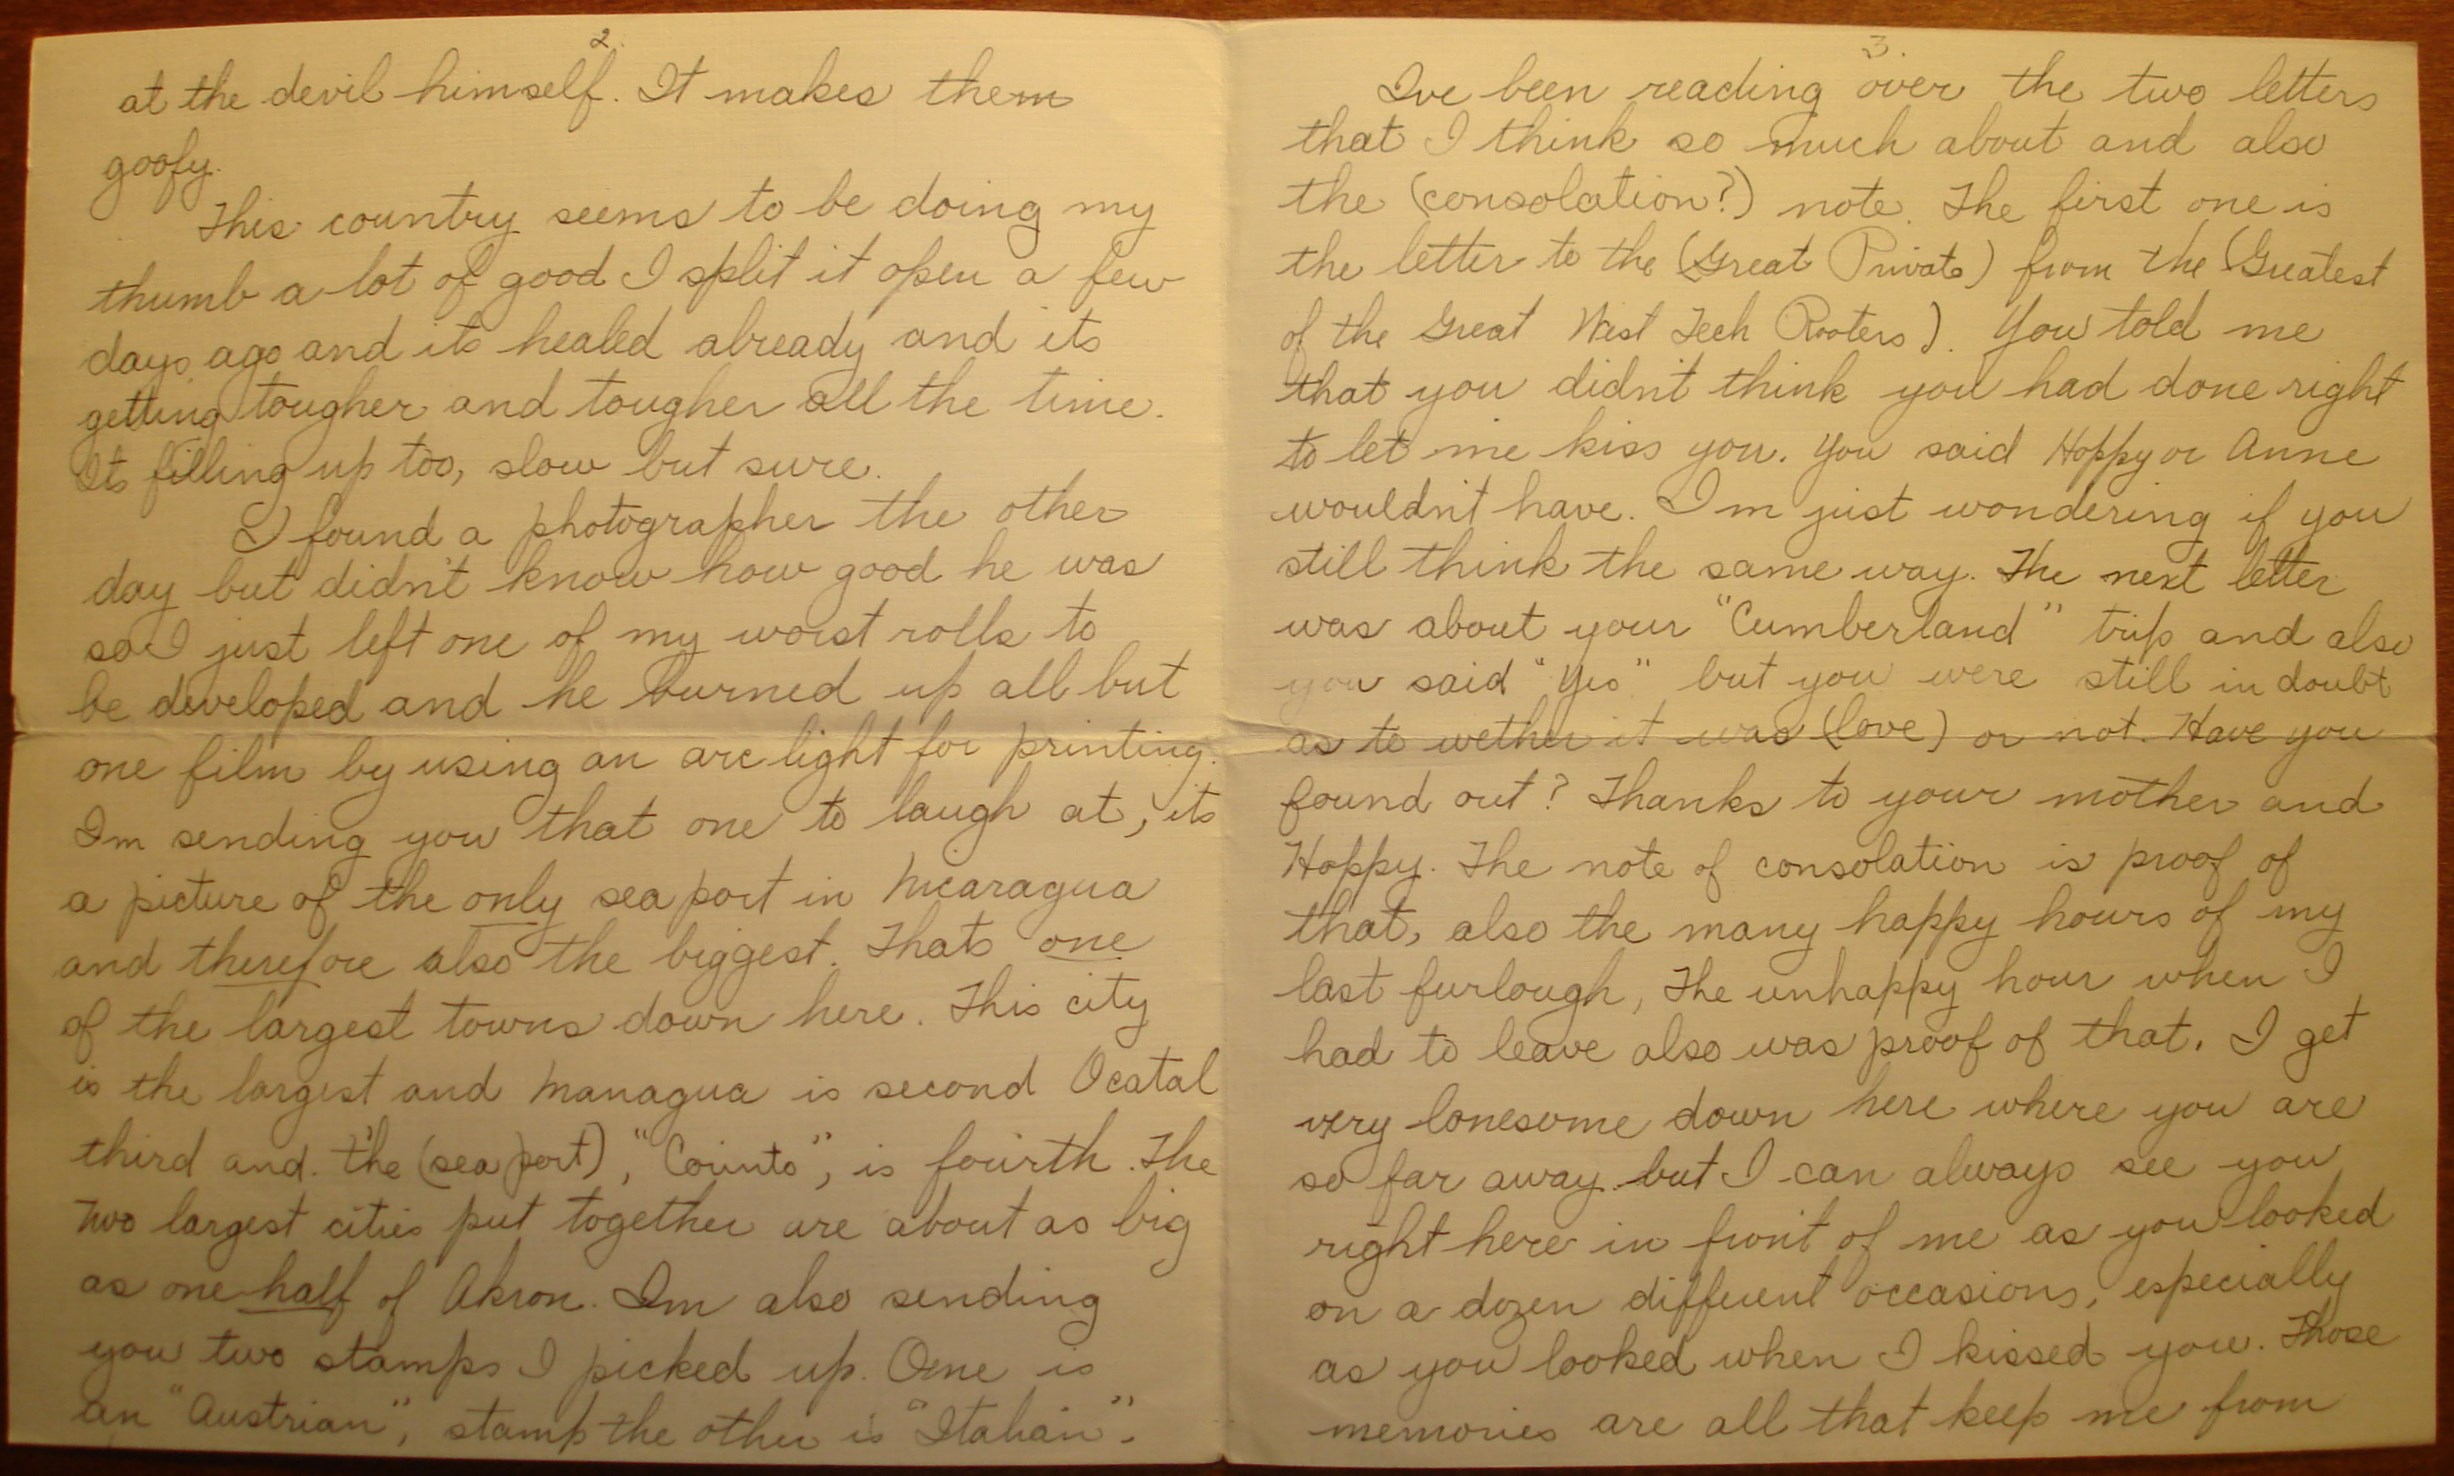 2.
at the devil himself. It makes them
goofy.
This country seems to be doing my
thumb a lot of good I split it open a few
days ago and its healed already and its
getting tougher and tougher all the time.
Its filling up too, slow but sure.
I found a photographer the other
day but didn't know how good he was
so I just left one of my worst rolls to
be developed and he burned up all but
one film by using an arc light for printing.
Im sending you that one to laugh at, its
a picture of the only sea port in Nicaragua
and therefore also the biggest. Thats one
of the largest towns down here. This city
is the largest and Managua is second Ocatal
third and. the (sea port), "Corinto", is fourth. The
two largest cities put together are about as big
as one-half of Akron. Im also sending
you two stamps I picked up. One is
an "Austrian", stamp the other is "Italian".
3.
Ive been reading over the two letters
that I think so much about and also
the (consolation?) note. The first one is
the letter to the (Great Private) from the (Greatest
of the Great West Tech Rooters). You told me
that you didn't think you had done right
to let me kiss you. You said Hoppy or Anne
wouldn't have. I'm just wondering if you
still think the same way. The next letter
was about your "Cumberland" trip and also
you said "Yes" but you were still in doubt
as to wether it was (love) or not. Have you
found out? Thanks to your mother and
Hoppy. The note of consolation is proof of
that, also the many happy hours of my
last furlough, The unhappy hour when I
had to leave also was proof of that. I get
very lonesome down here where you are
so far away but I can always see you
right here in front of me as you looked
on a dozen different occasions, especially
as you looked when I kissed you. Those
memories are all that keep me from